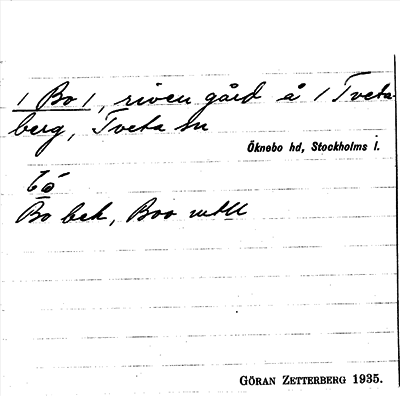 / Bo /, riven gård å / Tveta
berg, Tveta sn
Öknebo hd, Stockholms l.
Bo bek, Boo
GÖRAN ZETTERBERG 1935.